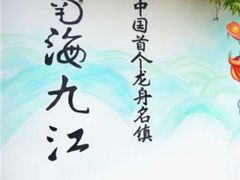 南海九江
中国首个龙舟名镇